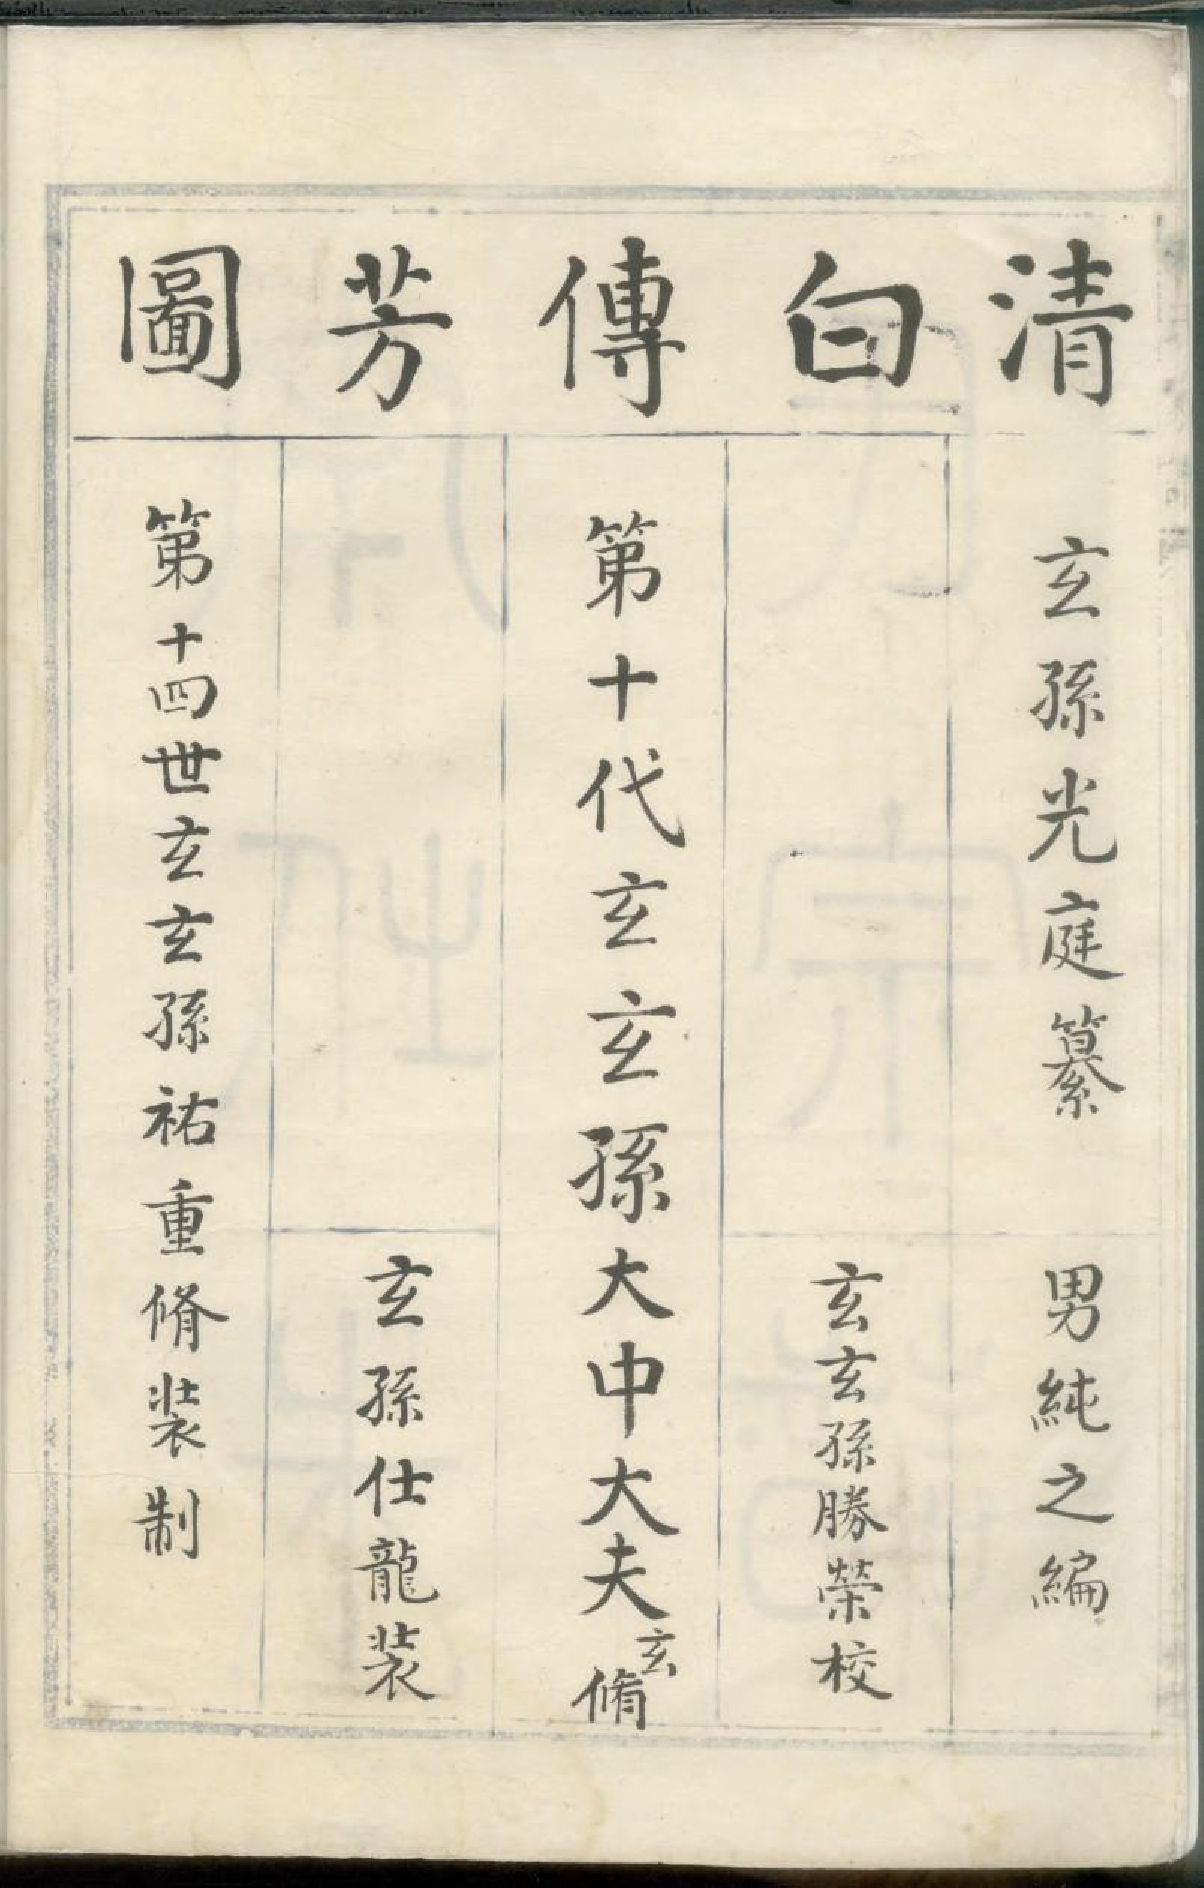 清白傳芳圖
玄孫光庭纂
男純之編
玄玄孫勝榮校
第十代玄玄孫大中大夫玄脩
玄孫仕龍裝
第十四世玄玄孫祐重脩裝制